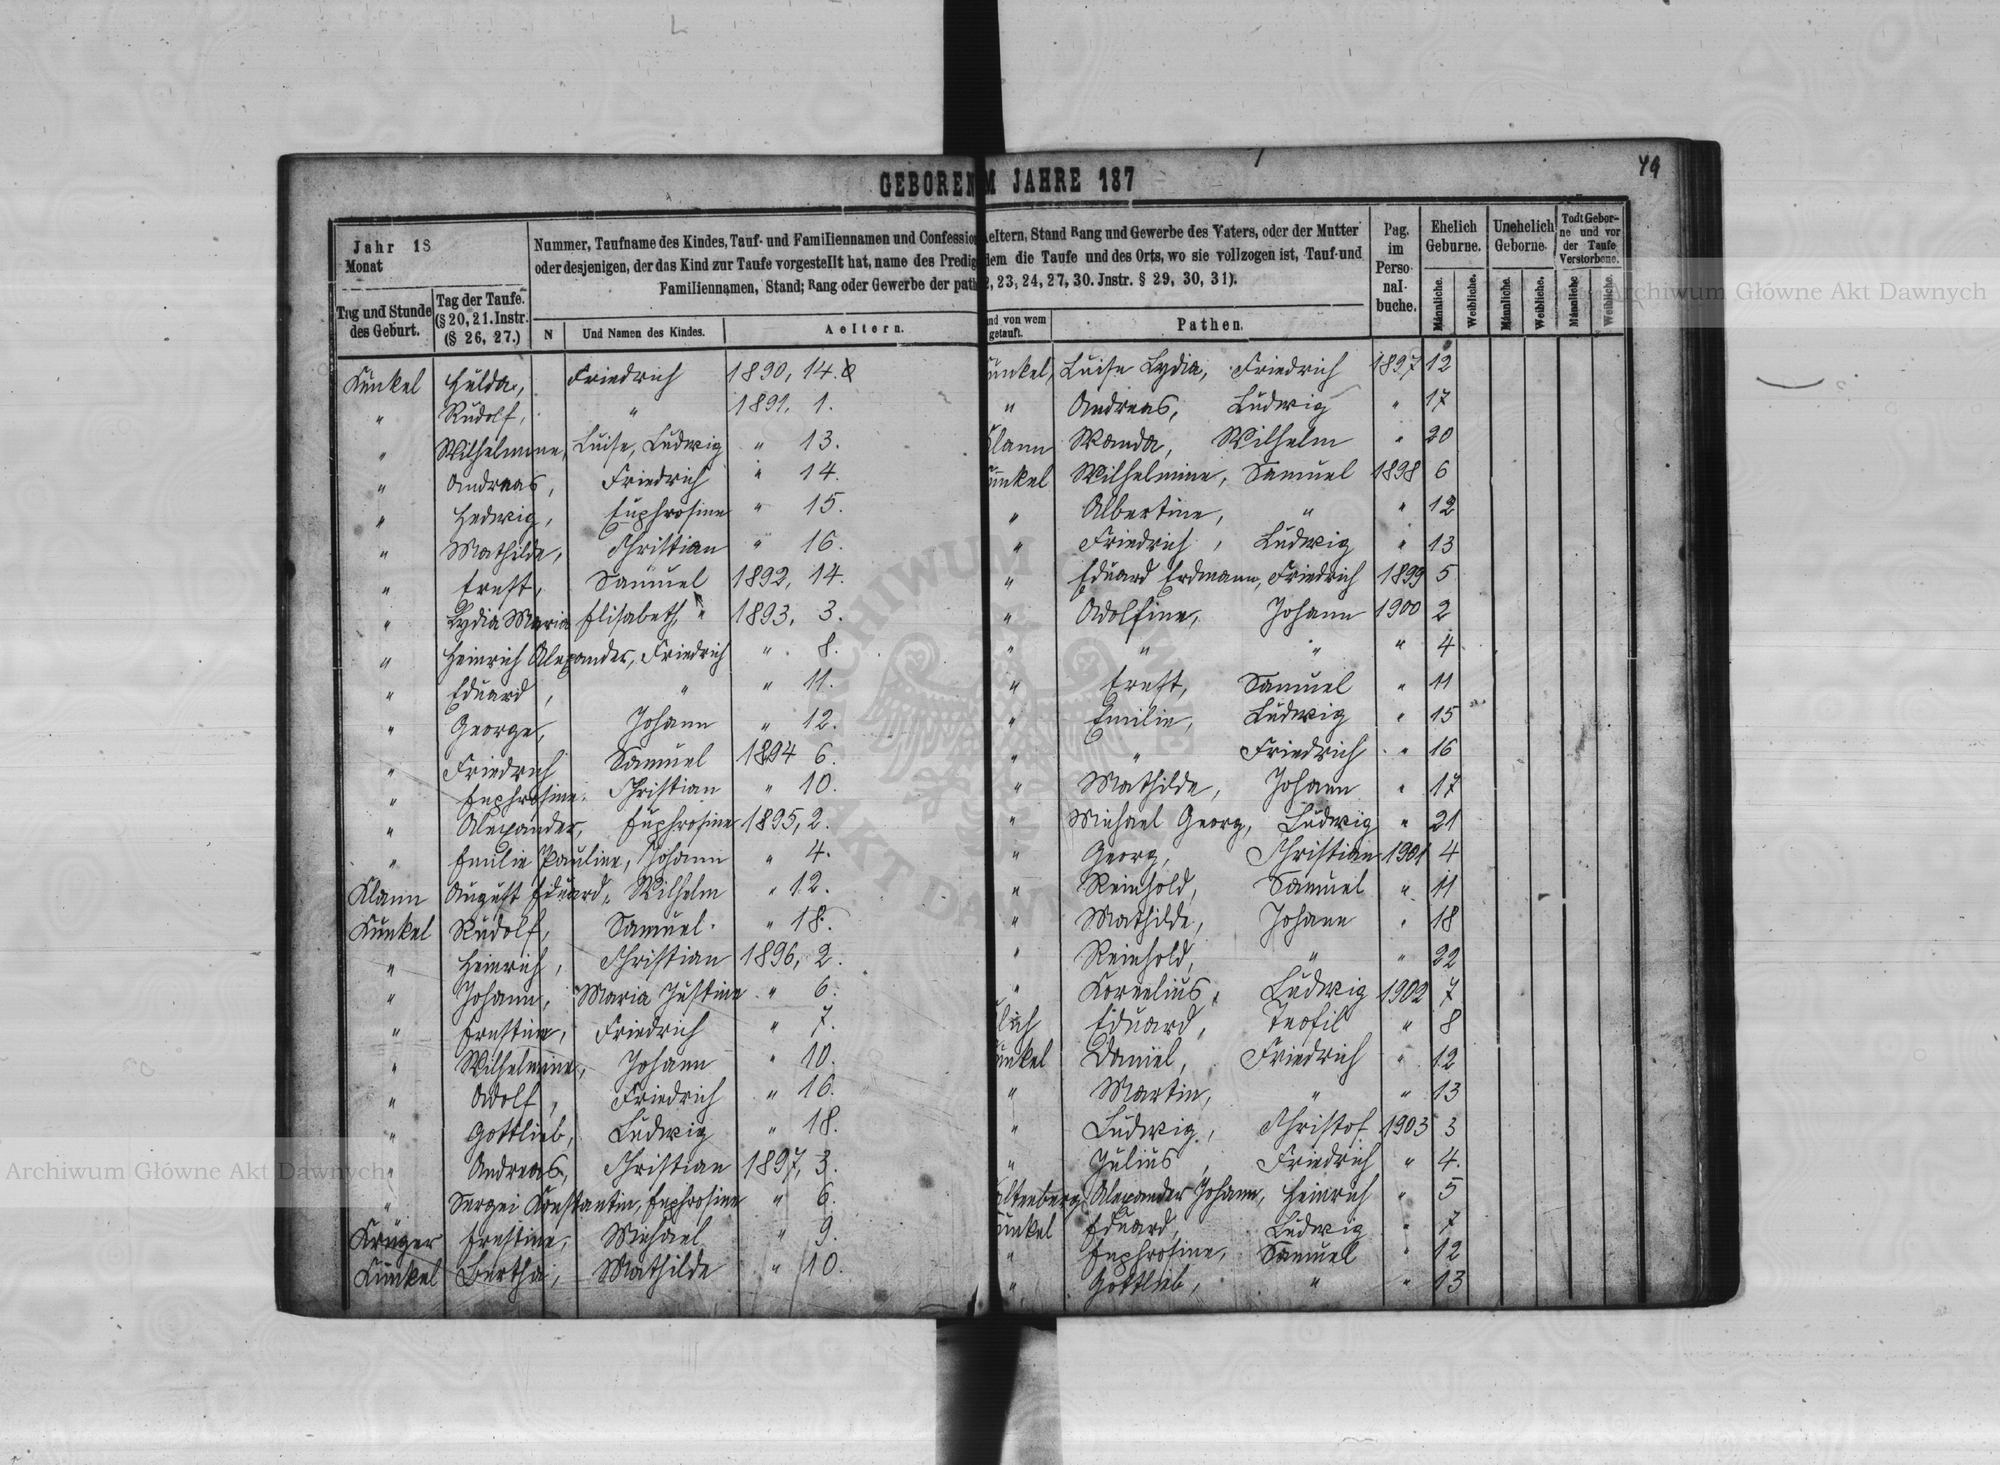 49
GEBOREN M JAHRE 187
Jahr 18
Monat
Tag und Stunde des Geburt.
Tag der Taufe. (§ 20, 21. Instr. (§ 26, 27.)
Nummer, Taufname des Kindes, Tauf- und Familiennamen und Confession
oder desjenigen, der das Kind zur Taufe vorgestellt hat, name des Predig
Familiennamen, Stand; Rang oder Gewerbe der path
N
Und Namen des Kindes.
Aeltern.
Aeltern, Stand Rang und Gewerbe des Vaters, oder der Mutter
dem die Taufe und des Orts, wo sie vollzogen ist, Tauf-und
2, 23, 24, 27, 30. Jnstr. § 29, 30, 31).
und von wem getauft.
Pathen.
Pag. im Perso-nal-buche.
Ehelich Geburne.
Unehelich Geborne.
Todt Gebor-ne und vor der Taufe Verstorbene.
Männliche. Weibliche. Männliche. Weibliche. Männliche Weibliche.
Künkel Hulda, Friedrich 1890, 14.
" Rudolf, " 1891, 1.
" Wilhelmine, Luise, Ludwig " 13.
" Andreas, Friedrich " 14.
" Hedwig, Euphrosine " 15.
" Mathilde, Christian " 16.
" Ernst, Samuel 1892, 14.
" Lydia Maria Elisabeth, " 1893, 3.
" Heinrich Alexander, Friedrich " 8.
" Eduard, " " 11.
" George, Johann " 12.
" Friedrich Samuel 1894 6.
" Euphrosine, Christian " 10.
" Alexander, Euphrosine 1895, 2.
" Emilie Pauline, Johann " 4.
Klann August Eduard, Wilhelm " 12.
Künkel Rudolf, Samuel " 18.
" Heinrich, Christian 1896, 2.
" Johann, Maria Justine " 6.
" Ernstine, Friedrich " 7.
" Wilhelmine, Johann " 10.
" Adolf, Friedrich " 16.
" Gottlieb, Ludwig " 18.
" Andreas, Christian 1897, 3.
" Sergei Konstantin, Euphrosine " 6.
Krüger Ernstine, Michael " 9.
Künkel Bertha, Mathilde " 10.
ünkel, Luise Lydia, Friedrich 1897 12
" Andreas, Ludwig " 17
Klann Wanda, Wilhelm " 20
ünkel Wilhelmine, Samuel 1898 6
" Albertine, " " 12
" Friedrich, Ludwig " 13
" Eduard Erdmann, Friedrich 1899 5
" Adolfine, Johann 1900 2
" " " " 4
" Ernst, Samuel " 11
" Emilie, Ludwig " 15
" " Friedrich " 16
" Mathilde, Johann " 17
" Michael Georg, Ludwig " 21
" Georg, Christian 1901 4
" Reinhold, Samuel " 11
" Mathilde, Johann " 18
" Reinhold, " " 22
" Kornelius, Ludwig 1902 7
Eduard, Teofil " 8
ünkel Daniel, Friedrich " 12
" Martin, " " 13
" Ludwig, Christof 1903 3
" Julius, Friedrich " 4.
altenberg, Alexander Johann, Heinrich " 5
ünkel Eduard, Ludwig " 7
" Euphrosine, Samuel " 12
" Gottlieb, " " 13
Archiwum Główne Akt Dawnych
Archiwum Główne Akt Dawnych